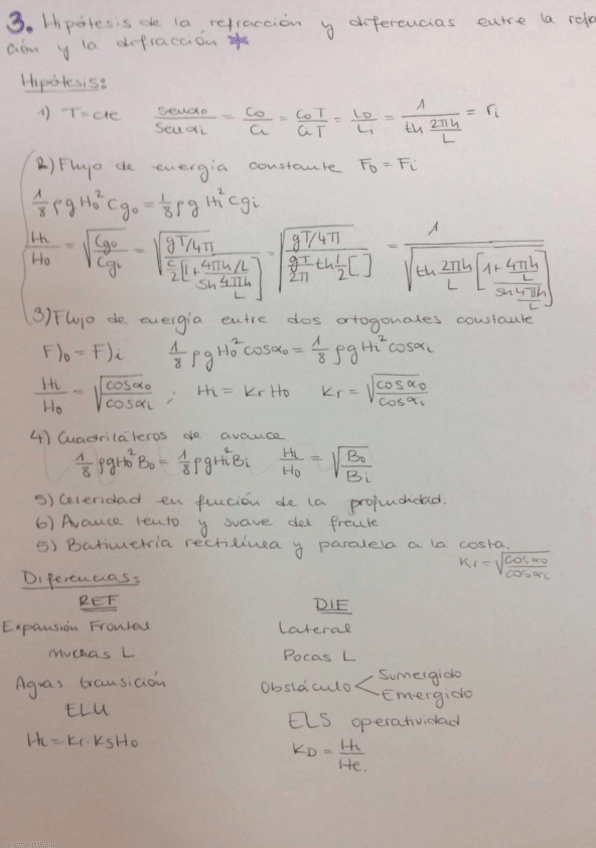 3. Hipótesis de la refracción y diferencias entre la refra
ción y la difracción *
Hipótesis:
1) T=cte senα₀/senαi = C₀/Ci = C₀T/CiT = L₀/Li = 1/th 2πh/L = ri
2) Flujo de energía constante F₀ = Fi
1/8 ρg H₀² Cg₀ = 1/8 ρg Hi² Cgi
Hi/H₀ = √(Cg₀/Cgi) = √((gT/4π)/(c/2[1+(4πh/L)/(sh 4πh/L)])) = √((gT/4π)/(gT/2π th 1/2 [ ])) = 1/√(th 2πh/L [1+(4πh/L)/(sh 4πh/L)])
3) Flujo de energía entre dos ortogonales constante
F)₀ = F)i 1/8 ρg H₀² cosα₀ = 1/8 ρg Hi² cosαi
Hi/H₀ = √(cosα₀/cosαi) ; Hi = Kr H₀ Kr = √(cosα₀/cosαi)
4) Cuadriláteros de avance
1/8 ρg H₀² B₀ = 1/8 ρg Hi² Bi Hi/H₀ = √(B₀/Bi)
5) Celeridad en función de la profundidad.
6) Avance lento y suave del frente
5) Batimetría rectilínea y paralela a la costa.
Kr = √(cosα₀/cosαi)
Diferencias:
REF DIF
Expansión Frontal Lateral
Muchas L Pocas L
Aguas transición Obstáculo < Sumergido
Emergido
ELU ELS operatividad
Hi = Kr·Ks H₀ KD = Hi/He.